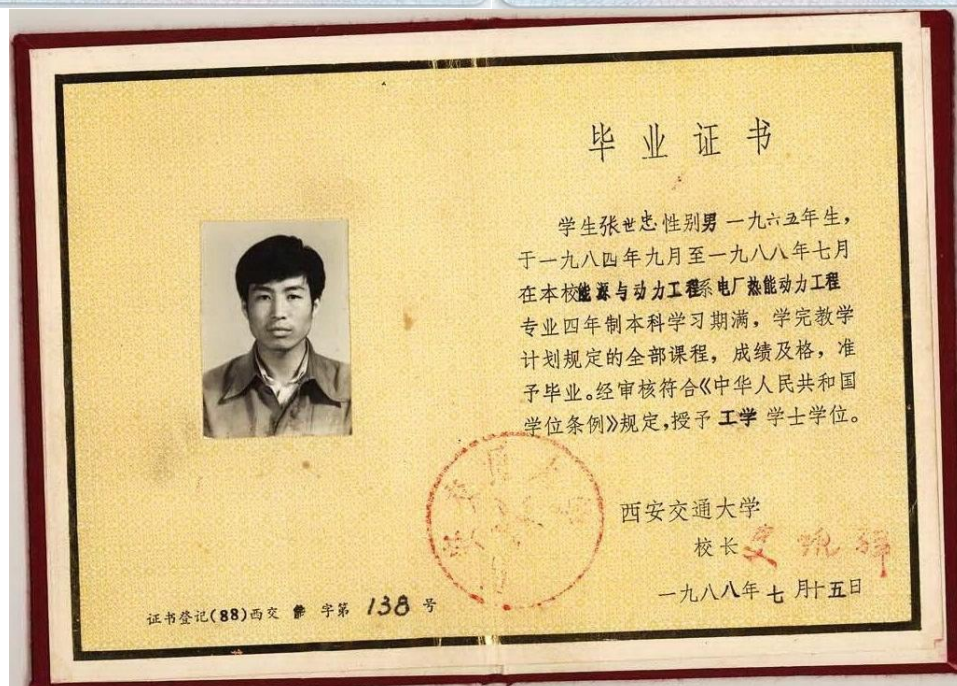 毕业证书
学生张世忠性别男一九六五年生，
于一九八四年九月至一九八八年七月
在本校能源与动力工程系电厂热能动力工程
专业四年制本科学习期满，学完教学
计划规定的全部课程，成绩及格，准
予毕业。经审核符合《中华人民共和国
学位条例》规定，授予 工学 学士学位。
西安交通大学
校长
一九八八年七月十五日
证书登记(88)西交 字第 138 号